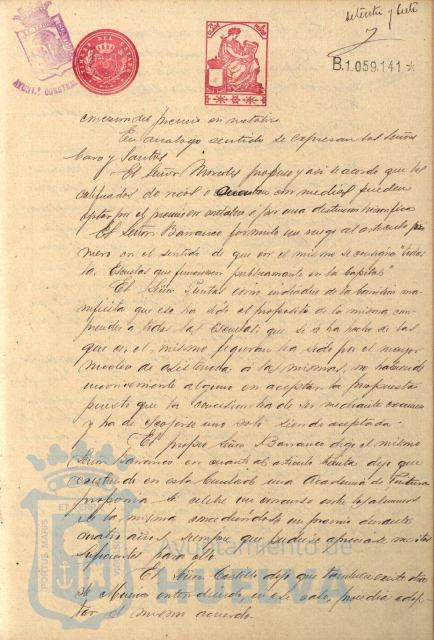 setenta y siete
7
B.1.059.141
TIMBRE DEL ESTADO
concesion del premio en metálico
En analogo sentido se expresan los Señores
Caro y Santos
El Señor Morales propuso y asi se acordó que los
calificados de nueve o con medias pueden
optar por el premio en metálico o por una distincion honorifica
El Señor Barranco formuló un ruego al articulo pri
mero en el sentido de que en el mismo se consigne "todas
las Escuelas que funcionen publicamente en la Capital"
El Señor como individuo de la Comisión ma-
nifiesta que ese ha sido el proposito de la misma com-
prender a todas las Escuelas; que si se ha hecho de las
que en el mismo figuran ha sido por el mayor
nucleo de asistencia á las mismas, no habiendo
inconveniente alguno en aceptar la propuesta
puesto que la concesion ha de ser mediante examen
y ha de escojerse uno solo siendo aceptada.
El propio Señor Barranco digo el mismo
Señor Barranco en cuanto al articulo dijo que
existiendo en esta Ciudad una Academia de Pintura
proponia se celebre un concurso entre los alumnos
de la misma concediendose un premio durante
cuatro años, siempre que pudiese apreciarse meritos
suficientes para ello
El Señor Castillo dijo que tambien existe otra
de Musica entendiendo en ese caso, procedia adop-
tar el mismo acuerdo.
PORTUS MARIS ET TERRAE CUSTODIA
Ayuntamiento de
HUELVA